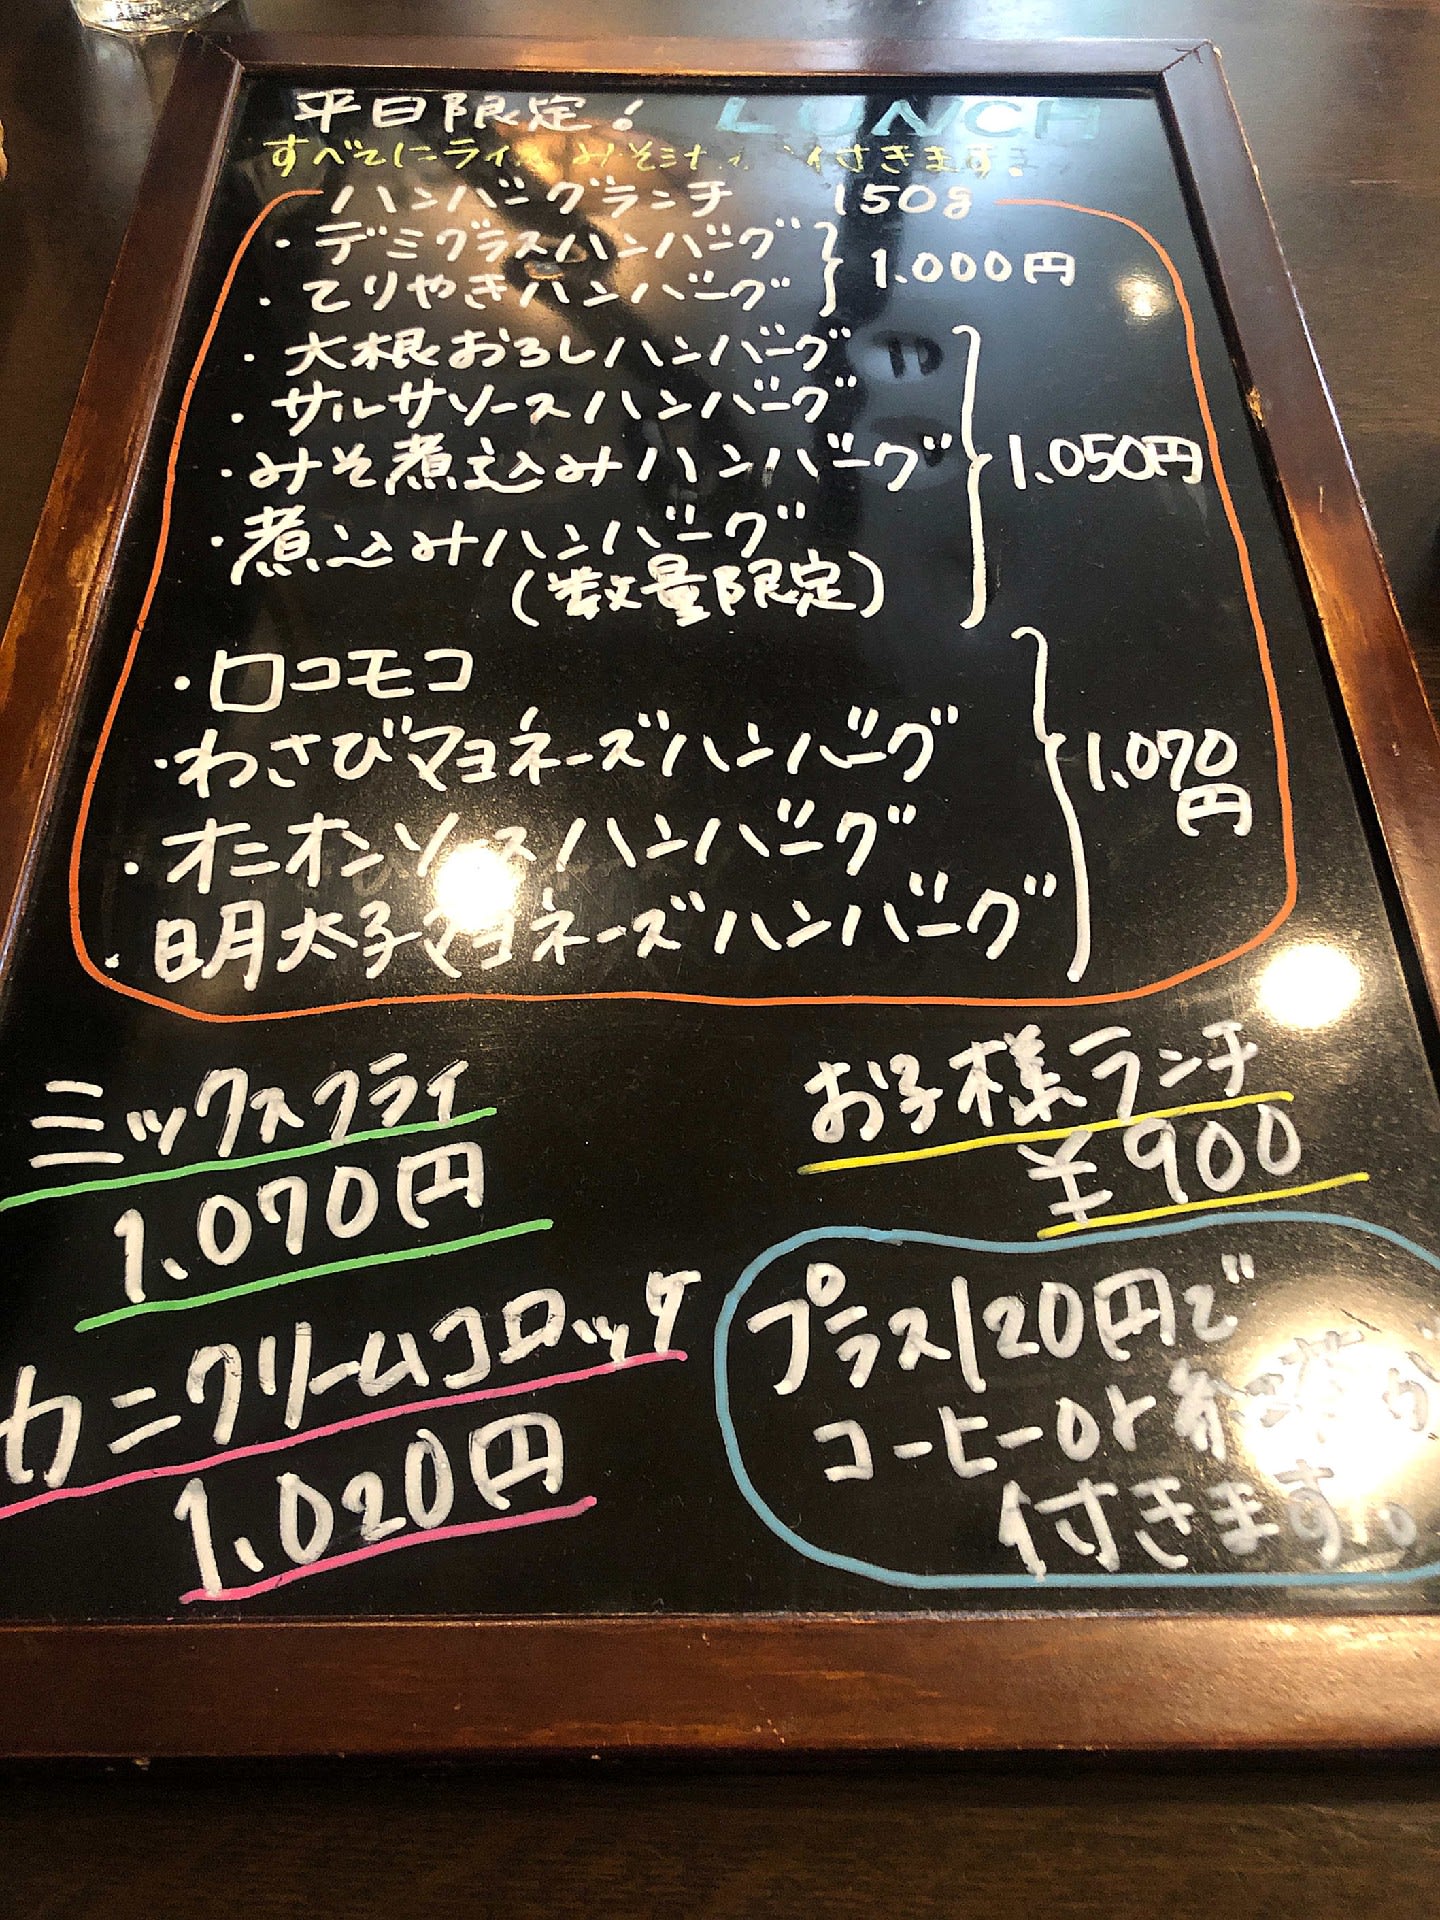 平日限定! LUNCH
すべてにライス みそ汁 付きます。
ハンバーグランチ 150g
・デミグラスハンバーグ
・てりやきハンバーグ
1.000円
・大根おろしハンバーグ
・サルサソースハンバーグ
・みそ煮込みハンバーグ
・煮込みハンバーグ
(数量限定)
1.050円
・ロコモコ
・わさびマヨネーズハンバーグ
・オニオンソースハンバーグ
・明太子マヨネーズハンバーグ
1.070
円
ミックスフライ
1.070円
カニクリームコロッケ
1.020円
お子様ランチ
¥900
プラス120円で
コーヒーor紅茶が
付きます。